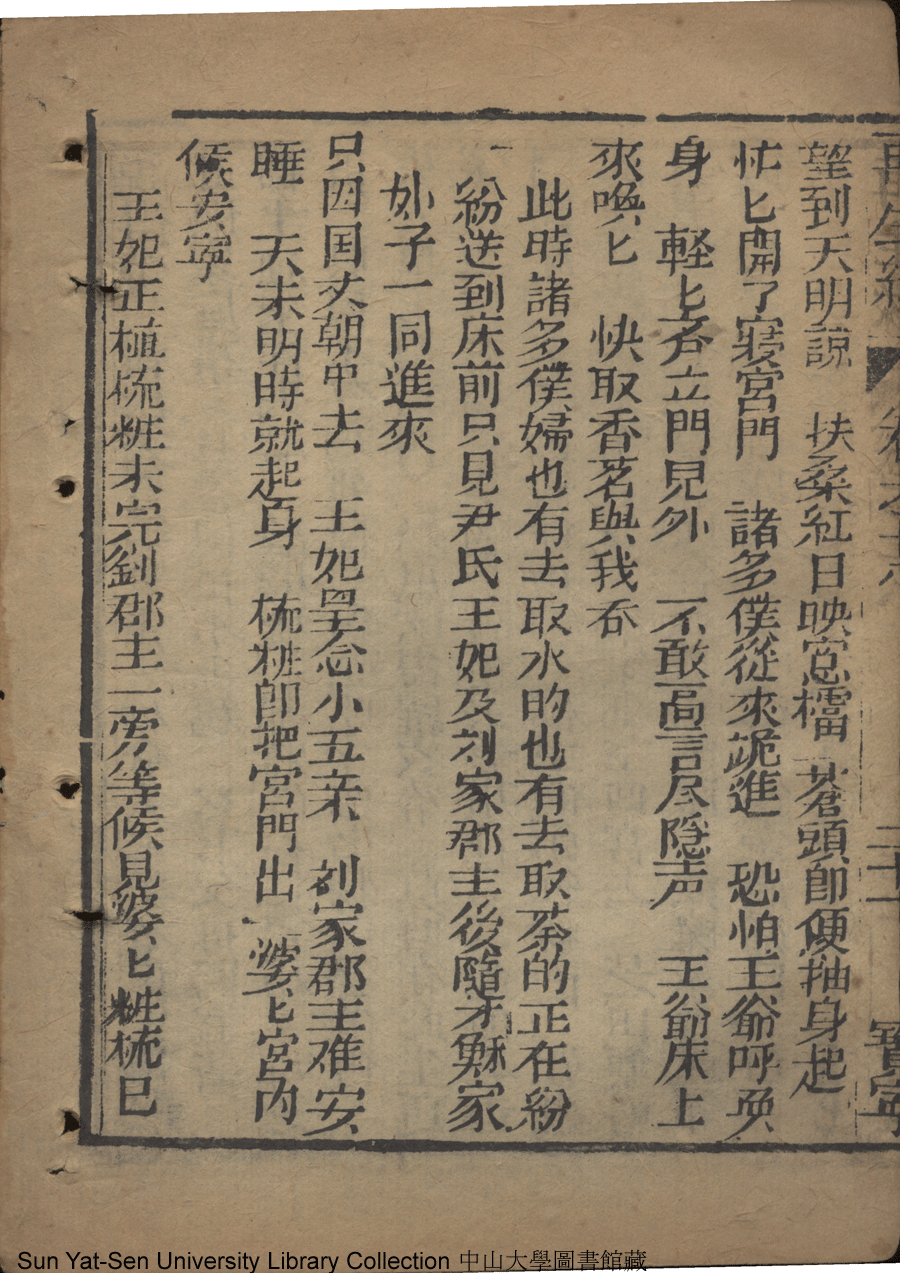 再生緣 卷之十六 二十一 寶寧
望到天明說 扶桑紅日映窓櫺 蒼頭卽便抽身起
忙匕開了寢宮門 諸多僕從來跪進 恐怕王爺呼喚
身 軽匕齐立門兒外 不敢高言尽隐声 王爺床上
來喚匕 快取香茗與我吞
此時諸多僕婦也有去取水的也有去取茶的正在紛
紛送到床前只見尹氏王妃及刘家郡主後隨牙
妳子一同進來
只因国丈朝中去 王妃里念小五亲 刘家郡主难安
睡 天未明時就起身 梳粧卽把宮門出 婆匕宮內
候安寧
王妃正植梳粧未完劉郡主一旁等候見婆匕粧梳已
Sun Yat-Sen University Library Collection 中山大學圖書館藏